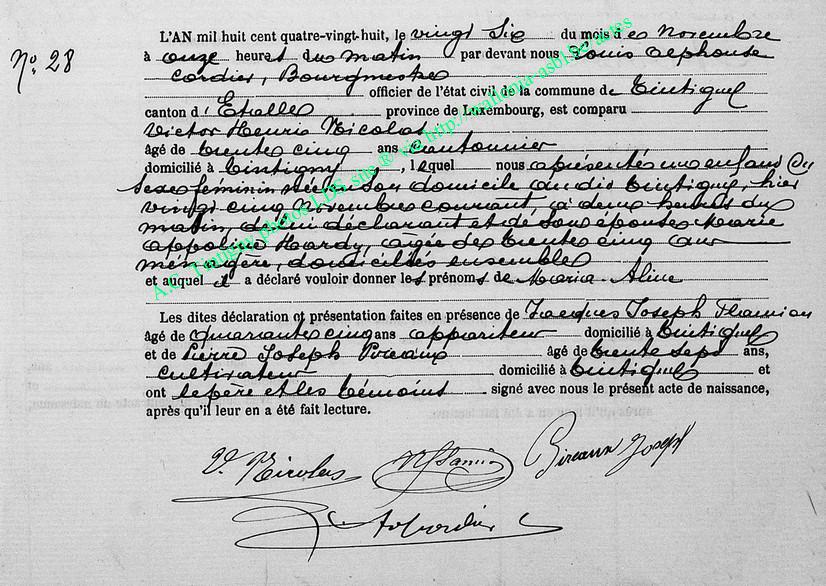 N° 28
L'AN mil huit cent quatre-vingt-huit, le vingt six du mois de Novembre
à onze heures du matin par devant nous Louis Alphonse
Cordier, Bourgmestre
officier de l'état civil de la commune de Tintigny
canton d'Etalle province de Luxembourg, est comparu
Victor Henri Nicolas
âgé de trente cinq ans cantonnier
domicilié à Tintigny, lequel nous a présenté un enfant du
sexe féminin né en son domicile au dit Tintigny, hier
vingt cinq Novembre courant, à deux heures du
matin, de lui déclarant et de son épouse Marie
Appoline Hardy, âgée de trente cinq ans
ménagère, domiciliés ensemble
et auquel il a déclaré vouloir donner les prénoms de Maria Aline
Les dites déclaration et présentation faites en présence de Jacques Joseph Flamion
âgé de quarante cinq ans appariteur domicilié à Tintigny
et de Pierre Joseph Pireaux âgé de trente sept ans,
cultivateur domicilié à Tintigny et
ont le père et les témoins signé avec nous le présent acte de naissance,
après qu'il leur en a été fait lecture.
V. Nicolas Pireaux Joseph
Cordier